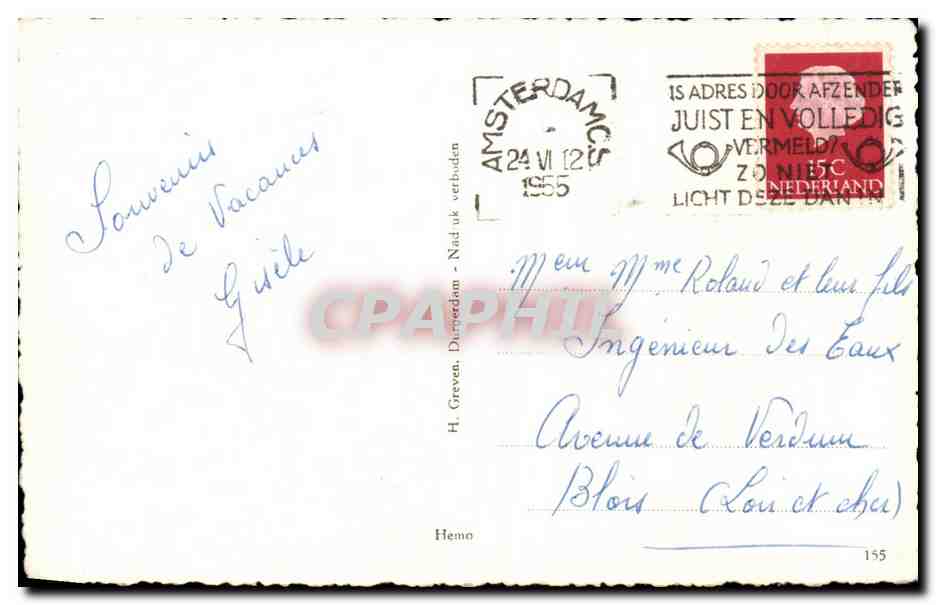 Souvenirs
de Vacances
Gisèle
H. Greven, Durgerdam - Nadruk verboden
Hemo
155
AMSTERDAM CS
24 VI 12
1955
IS ADRES DOOR AFZENDER
JUIST EN VOLLEDIG
VERMELD?
ZO NIET
LICHT DEZE DAN IN
15C
NEDERLAND
M et Mme Roland et leur fils
Ingénieur des Eaux
Avenue de Verdun
Blois (Loir et cher)
CPAPHIL